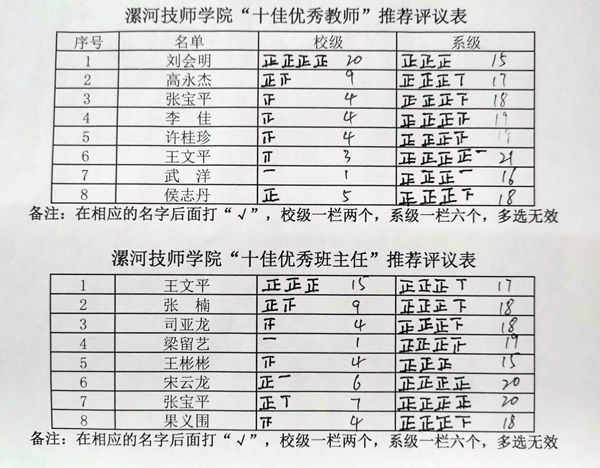 漯河技师学院“十佳优秀教师”推荐评议表
序号 名单 校级 系级
1 刘会明 正正正正 20 正正正 15
2 高永杰 正正 9 正正正丅 17
3 张宝平 正 4 正正正下 18
4 李 佳 正 4 正正正正 19
5 许桂珍 正 4 正正正正 19
6 王文平 3 正正正正一 21
7 武 洋 一 1 正正正一 16
8 侯志丹 正 5 正正正下 18
备注：在相应的名字后面打“√”，校级一栏两个，系级一栏六个，多选无效
漯河技师学院“十佳优秀班主任”推荐评议表
1 王文平 正正正 15 正正正丅 17
2 张 楠 正正 9 正正正下 18
3 司亚龙 正 4 正正正下 18
4 梁留艺 一 1 正正正正 19
5 王彬彬 正 4 正正正 15
6 宋云龙 正一 6 正正正正 20
7 张宝平 正丅 7 正正正正 20
8 果义围 正 4 正正正下 18
备注：在相应的名字后面打“√”，校级一栏两个，系级一栏六个，多选无效